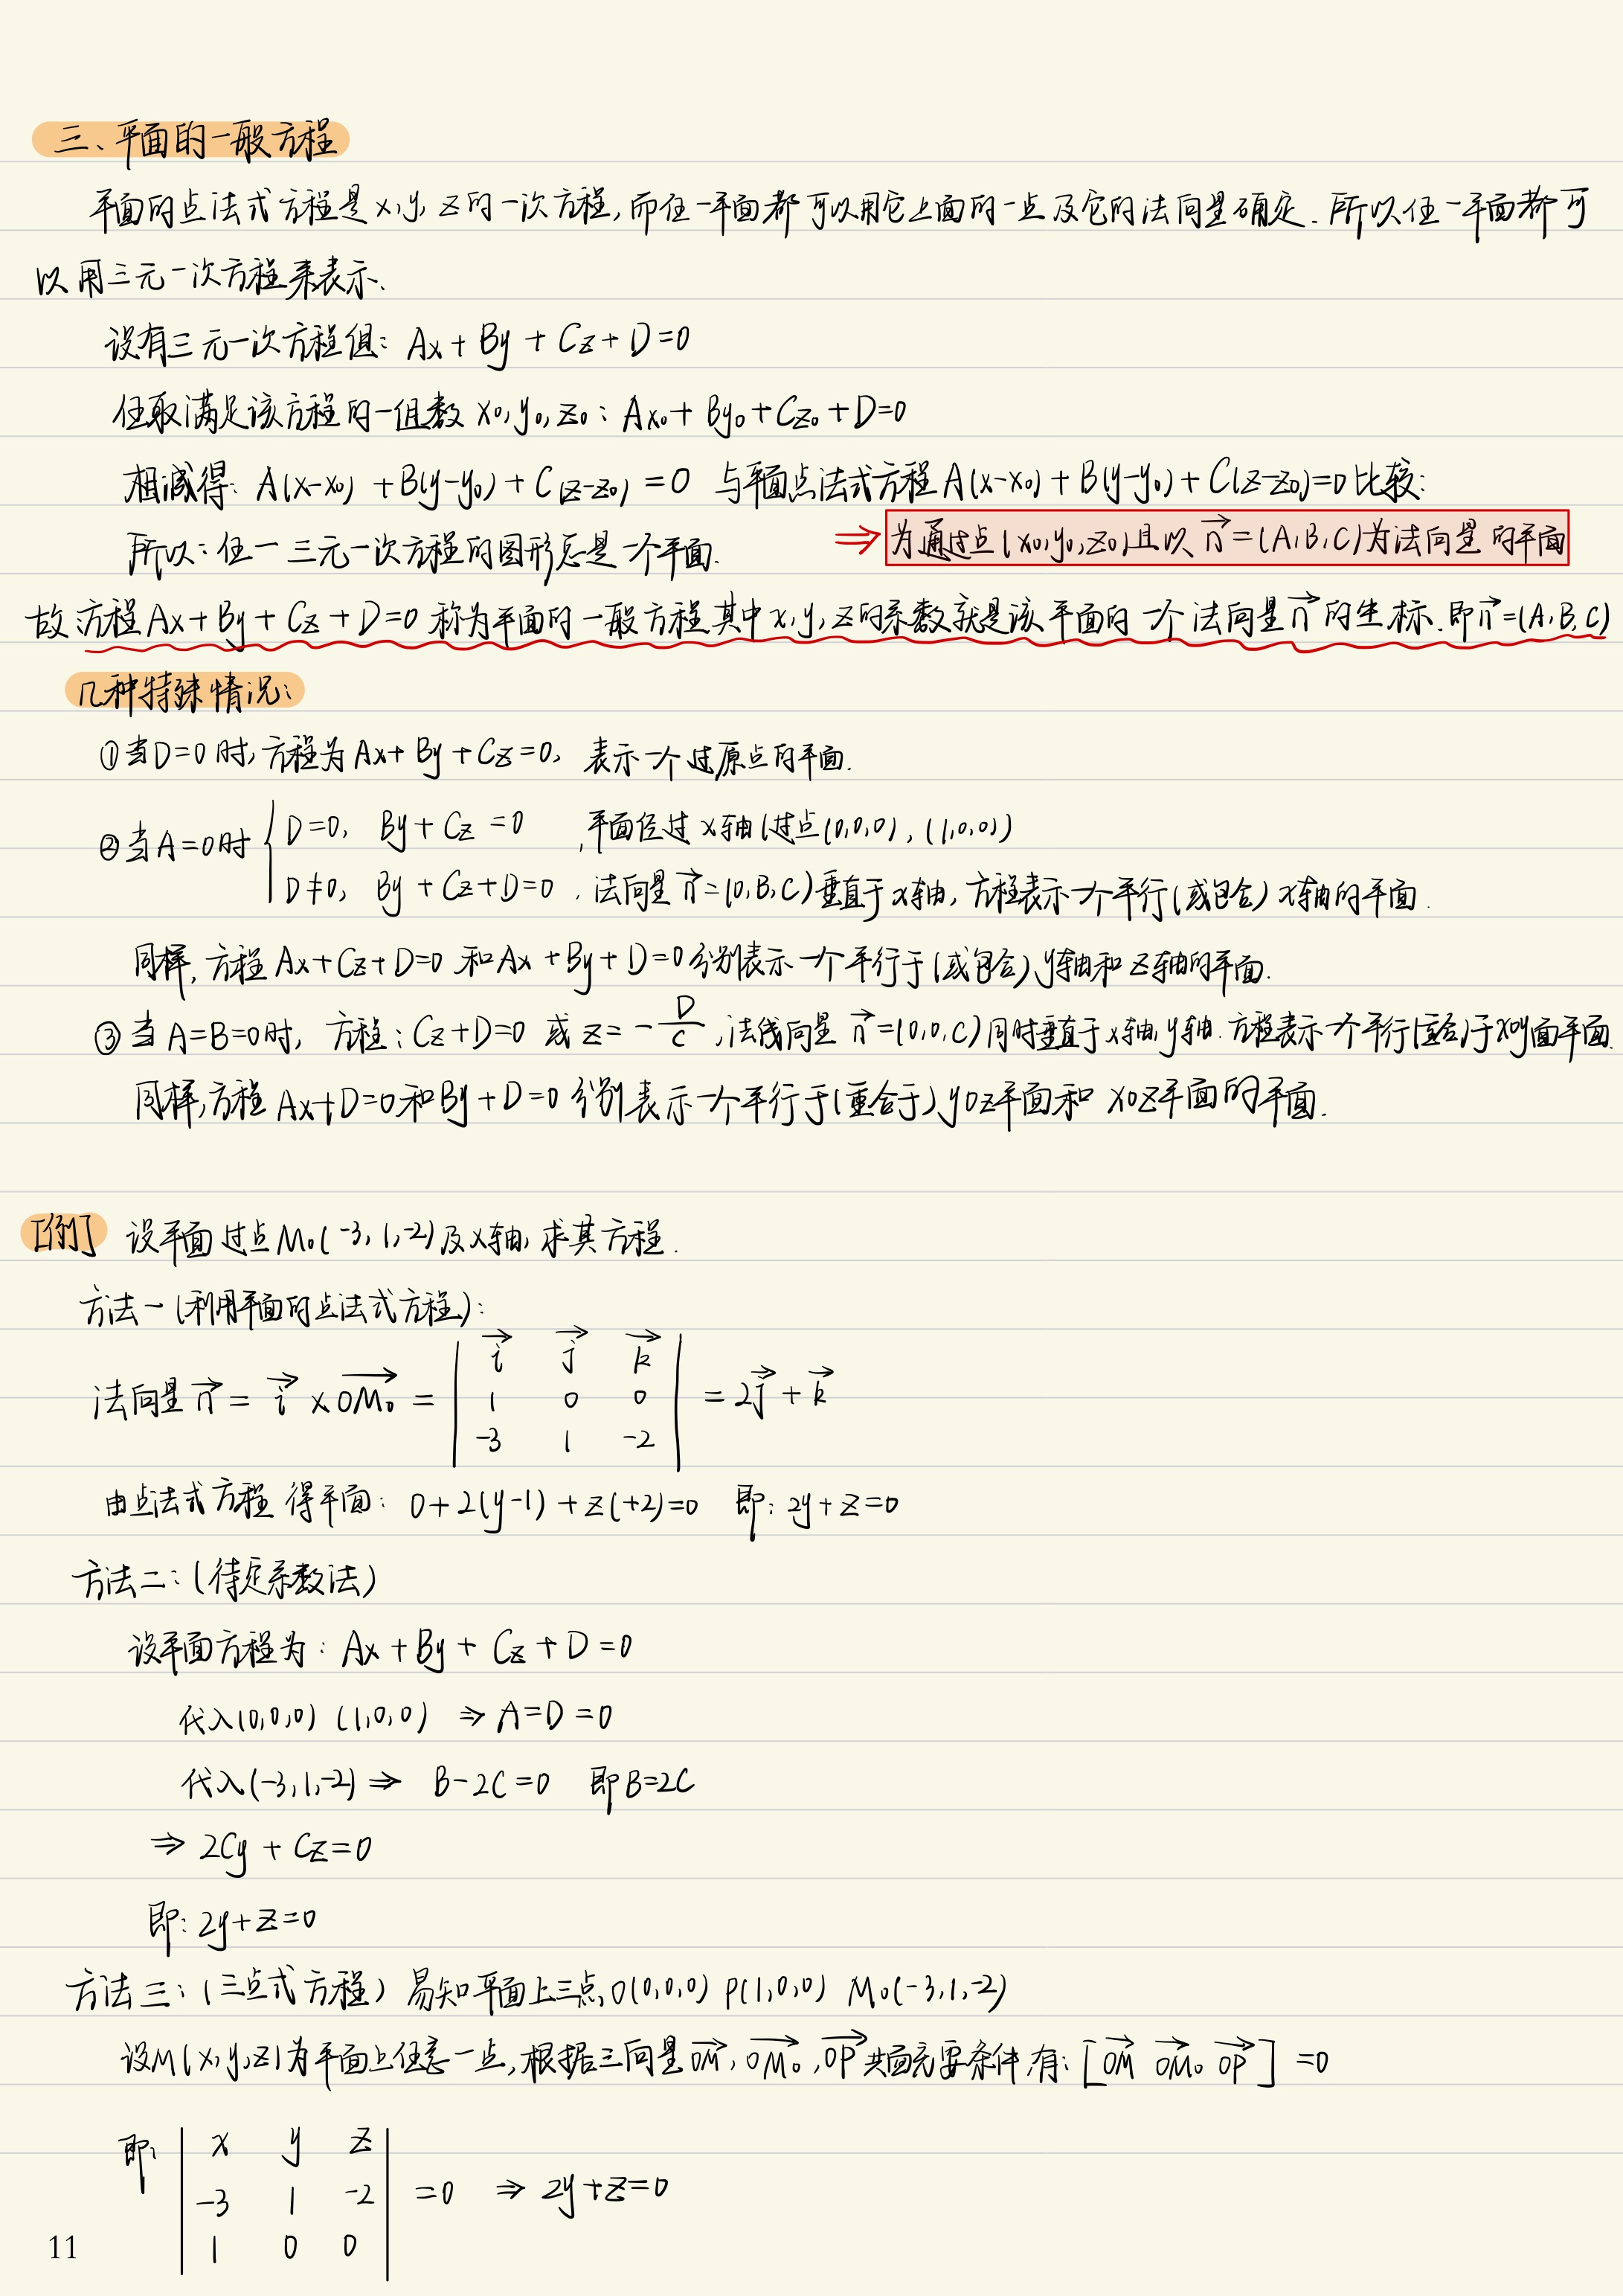 三、平面的一般方程
平面的点法式方程是x,y,z的一次方程,而任一平面都可以用它上面的一点及它的法向量确定.所以任一平面都可
以用三元一次方程来表示.
设有三元一次方程组: Ax+By+Cz+D=0
任取满足该方程的一组数 x₀,y₀,z₀: Ax₀+By₀+Cz₀+D=0
相减得: A(x-x₀)+B(y-y₀)+C(z-z₀)=0 与平面点法式方程A(x-x₀)+B(y-y₀)+C(z-z₀)=0比较:
所以: 任一三元一次方程的图形总是一个平面. ⇒ 为通过点(x₀,y₀,z₀)且以 n⃗=(A,B,C)为法向量的平面
故:方程Ax+By+Cz+D=0称为平面的一般方程.其中x,y,z的系数就是该平面的一个法向量n⃗的坐标.即n⃗=(A,B,C)
几种特殊情况:
①当D=0时,方程为Ax+By+Cz=0, 表示一个过原点的平面.
②当A=0时 { D=0, By+Cz=0 ,平面经过x轴(过点(0,0,0),(1,0,0))
D≠0, By+Cz+D=0 ,法向量n⃗=(0,B,C)垂直于x轴,方程表示一个平行(或包含)x轴的平面.
同样,方程Ax+Cz+D=0和Ax+By+D=0分别表示一个平行于(或包含)y轴和z轴的平面.
③当A=B=0时, 方程: Cz+D=0 或 z=-D/C ,法线向量n⃗=(0,0,C)同时垂直于x轴,y轴.方程表示一个平行(重合)于xoy面平面.
同样,方程Ax+D=0和By+D=0分别表示一个平行于(重合于)yoz平面和xoz平面的平面.
[例] 设平面过点M₀(-3,1,-2)及x轴,求其方程.
方法一(利用平面的点法式方程):
法向量n⃗=i⃗×OM₀⃗= | i⃗ j⃗ k⃗ | =2j⃗+k⃗
1 0 0
-3 1 -2
由点法式方程得平面: 0+2(y-1)+z(+2)=0 即: 2y+z=0
方法二:(待定系数法)
设平面方程为: Ax+By+Cz+D=0
代入(0,0,0) (1,0,0) ⇒ A=D=0
代入(-3,1,-2) ⇒ B-2C=0 即B=2C
⇒ 2Cy+Cz=0
即: 2y+z=0
方法三:(三点式方程) 易知平面上三点O(0,0,0) P(1,0,0) M₀(-3,1,-2)
设M(x,y,z)为平面上任意一点,根据三向量OM⃗,OM₀⃗,OP⃗共面充要条件,有: [OM⃗ OM₀⃗ OP⃗]=0
即: | x y z |
-3 1 -2 =0 ⇒ 2y+z=0
1 0 0
11